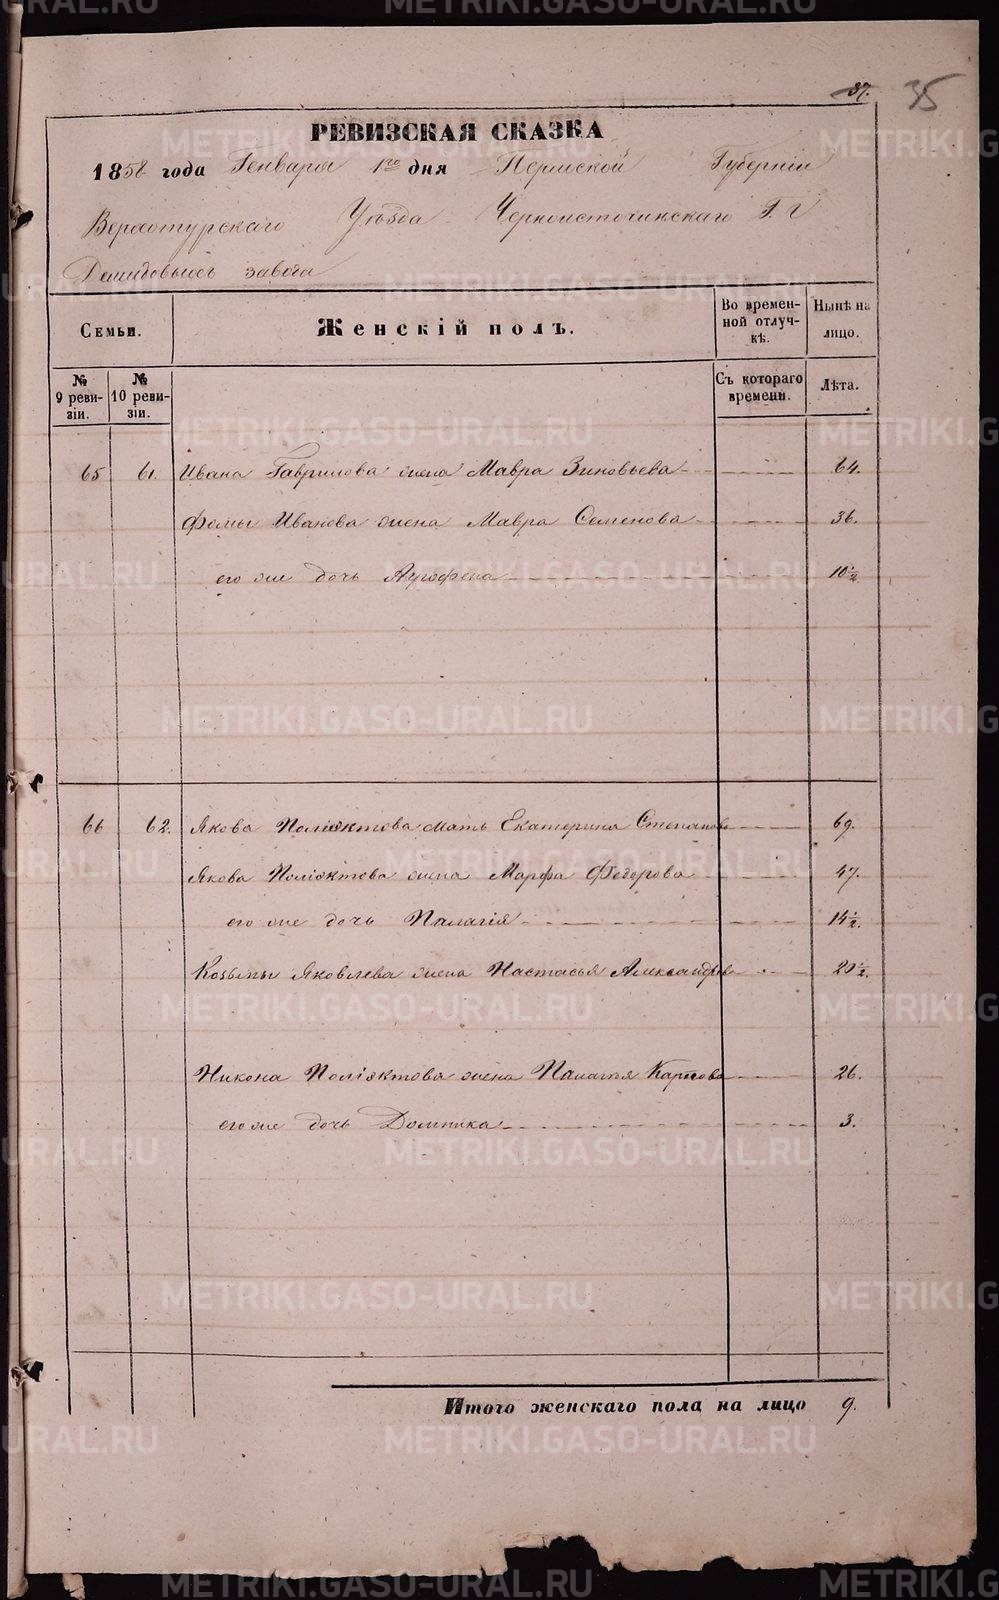 37. 35
РЕВИЗСКАЯ СКАЗКА
1858 года Генваря 1го дня Пермской Губерніи
Верхотурскаго Уѣзда Черноисточинскаго Г. г
Демидовыхъ завода
Семьи.
Женскій полъ.
Во времен-
ной отлуч-
кѣ.
Нынѣ на
лицо.
№
9 реви-
зіи.
№
10 реви-
зіи.
Съ котораго
времени.
Лѣта.
65 61. Ивана Гаврилова жена Мавра Зиновьева 64.
Фомы Иванова жена Мавра Семенова 36.
его же дочь Агрофена 10½.
66 62. Якова Поліэктова мать Екатерина Степанова 69.
Якова Поліэктова жена Марфа Федорова 47.
его же дочь Палагія 14½.
Козьмы Яковлева жена Настасья Александрова 20½.
Никона Поліэктова жена Палагѣя Карпова 26.
его же дочь Домника 3.
Итого женскаго пола на лицо 9.
METRIKI.GASO-URAL.RU